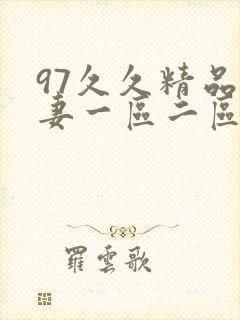 97久久精品
妻一區二區
羅雲歌